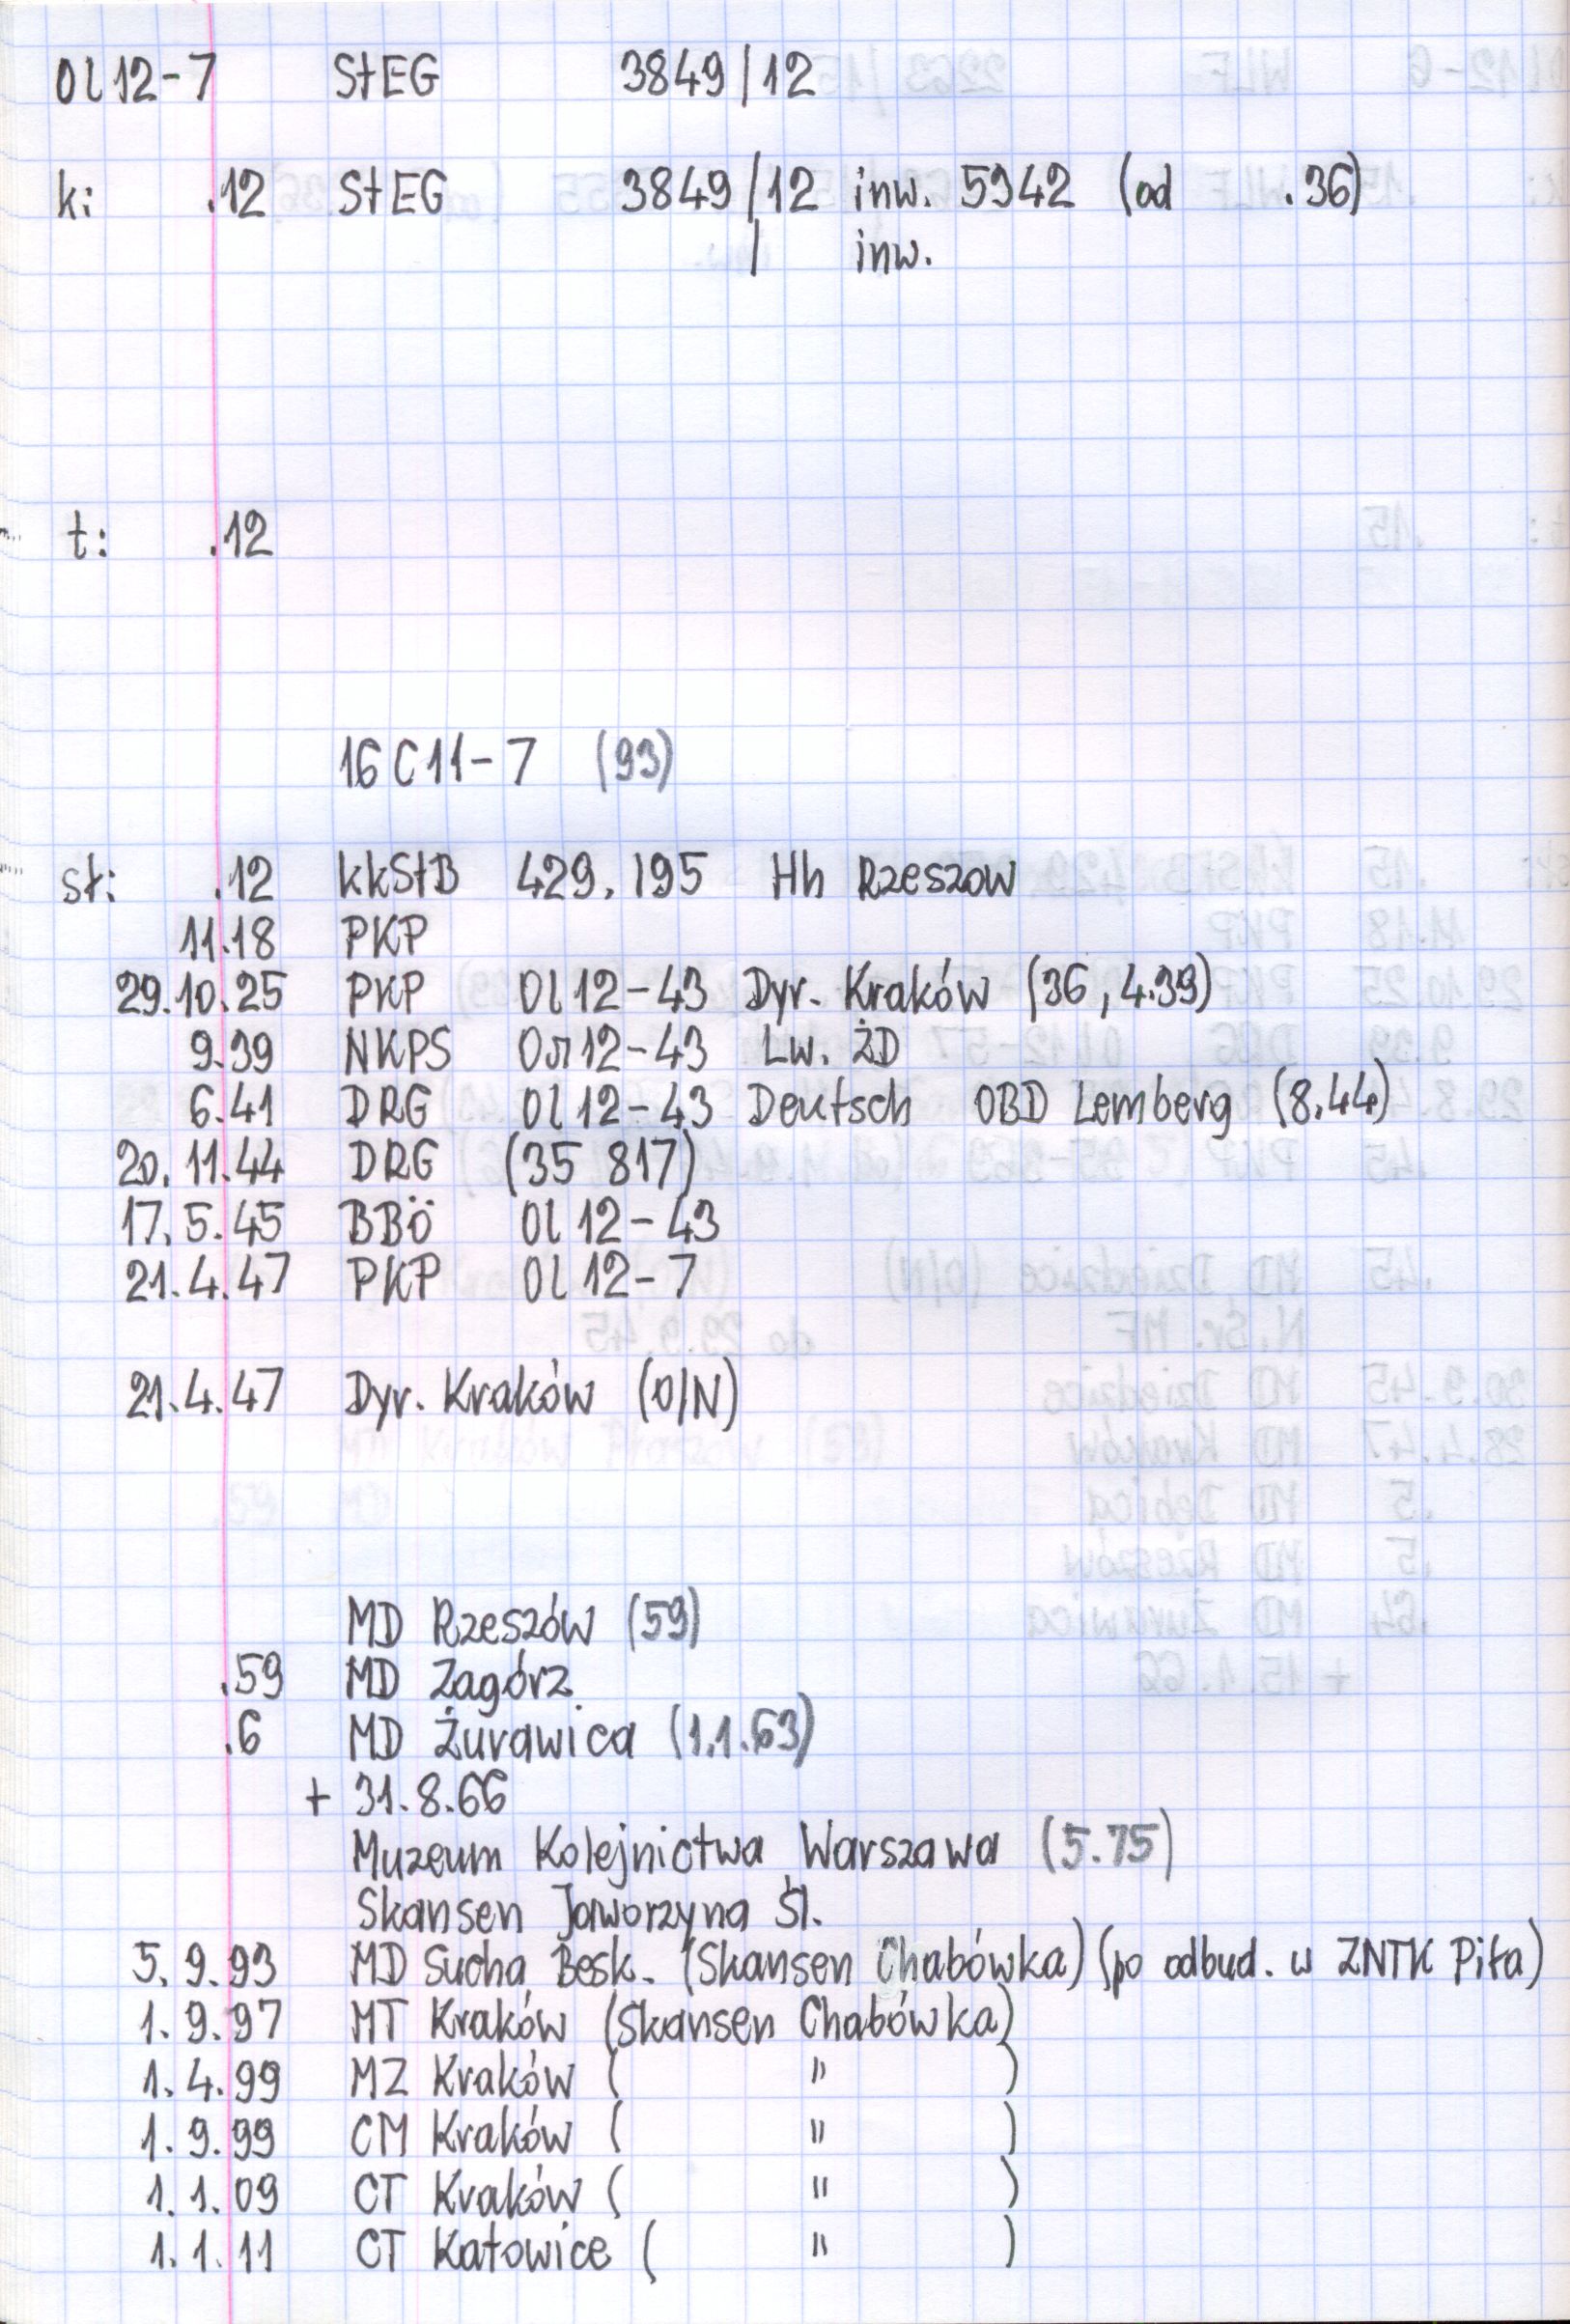 Ol12-7 StEG 3849/12
k: .12 StEG 3849/12 inw. 5942 (od .36)
/ inw.
t: .12
16C11-7 (93)
st: .12 kkStB 429.195 Hh Rzeszow
11.18 PKP
29.10.25 PKP Ol12-43 Dyr. Kraków (36, 4.39)
9.39 NKPS Ол12-43 Lw. ŻD
6.41 DRG Ol12-43 Deutsch OBD Lemberg (8.44)
20.11.44 DRG (35 817)
17.5.45 BBÖ Ol12-43
21.4.47 PKP Ol12-7
21.4.47 Dyr. Kraków (O/N)
MD Rzeszów (59)
.59 MD Zagórz
.6 MD Żurawica (1.1.63)
+ 31.8.66
Muzeum Kolejnictwa Warszawa (5.75)
Skansen Jaworzyna Śl.
5.9.93 MD Sucha Besk. (Skansen Chabówka) (po odbud. w ZNTK Piła)
1.9.97 MT Kraków (Skansen Chabówka)
1.4.99 MZ Kraków ( " )
1.9.99 CM Kraków ( " )
1.1.09 CT Kraków ( " )
1.1.11 CT Katowice ( " )